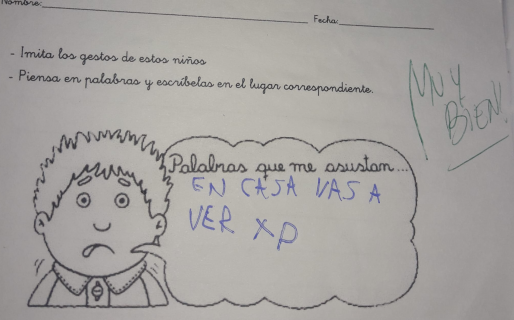 Nombre:
Fecha:
- Imita los gestos de estos niños
- Piensa en palabras y escríbelas en el lugar correspondiente.
MUY
BIEN!
Palabras que me asustan...
EN CASA VAS A
VER XD